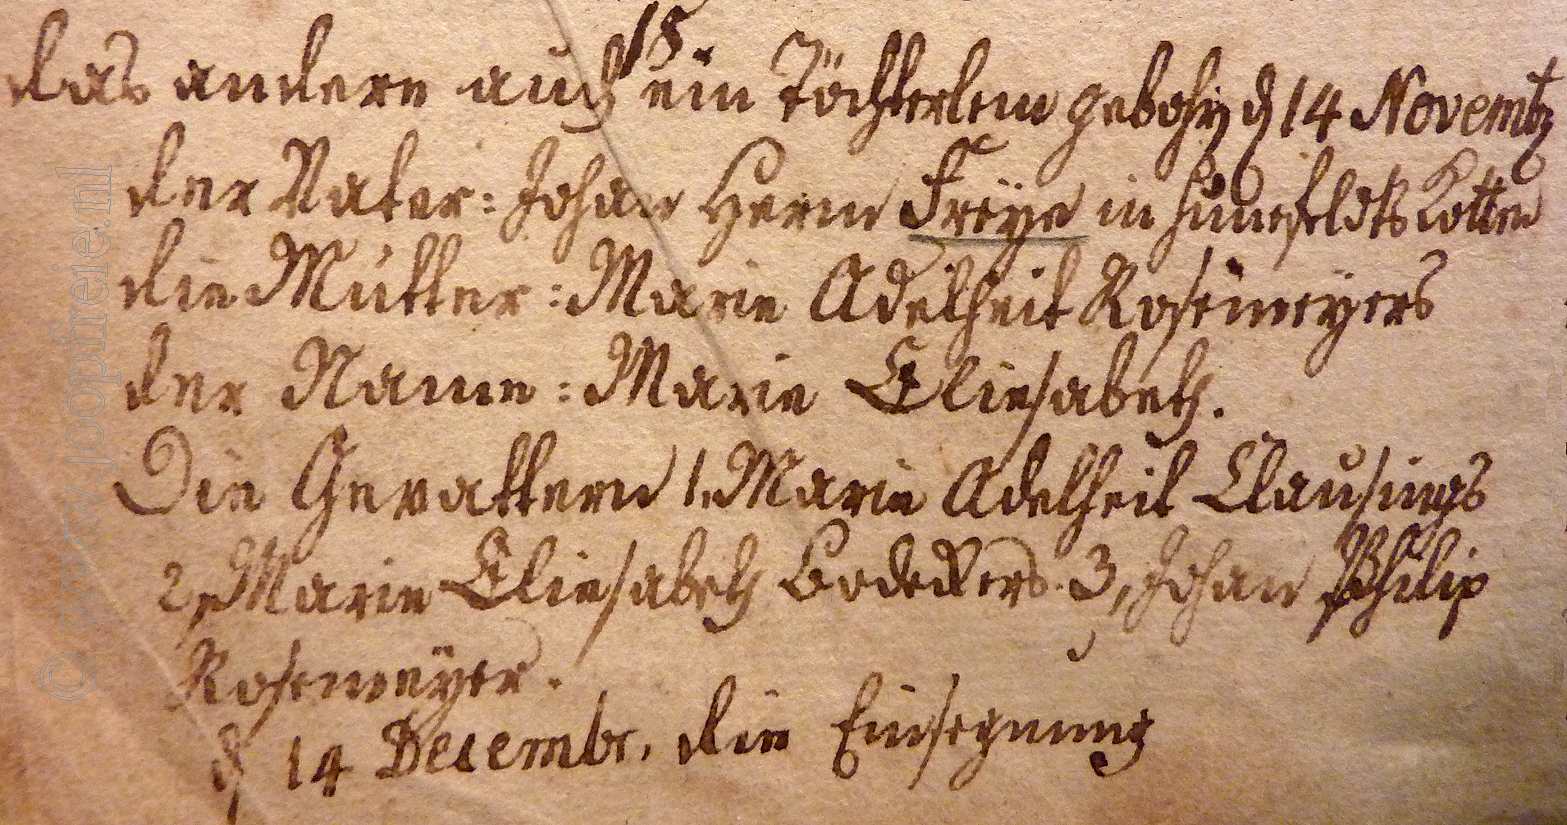 18.
das andere auch ein Töchterlein gebohrn d 14 Novembr
der Vater: Johan Herm Freÿe in Hünefeldts Kotten
die Mutter: Marie Adelheit Rosemeÿers
der Name: Marie Eliesabeth.
Die Gevattern 1, Marie Adelheit Clausings
2, Marie Eliesabeth Bodeckers. 3, Johan Philip
Rosemeÿer.
d 14 Decembr. die Einsegnung